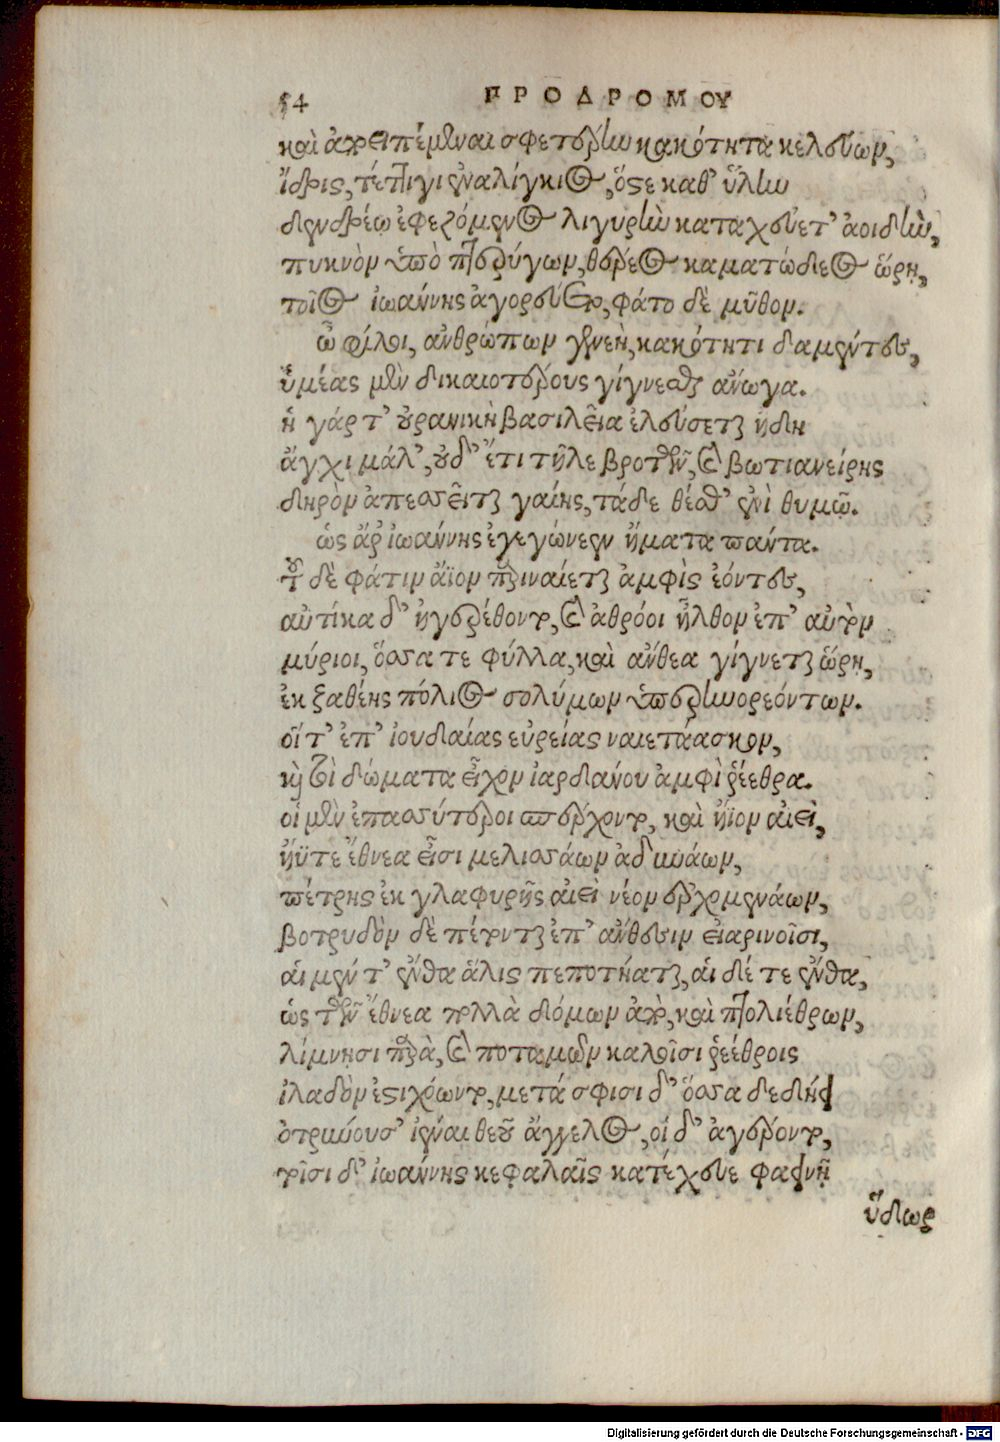 54
ΠΡΟΔΡΟΜΟΥ
καὶ ἀποπέμψαι σφετέρην κακότητα κελεύων,
ἴδρις, τέττιγι ἐναλίγκιος, ὅστε καθ' ὕλην
δενδρέῳ ἐφεζόμενος λιγυρὴν καταχεύετ' ἀοιδὴν,
πυκνὸν ὑπὸ πτερύγων, θέρεος καματώδεος ὥρῃ,
τοῖος ἰωάννης ἀγορεύετο, φάτο δὲ μῦθον.
ὦ φίλοι, ἀνθρώπων γενεὴ, κακότητι δαμέντες,
ὑμέας μὲν δικαιοτέρους γίγνεσθαι ἄνωγα.
ἡ γάρ τ' οὐρανικὴ βασιλεία ἐλεύσεται ἤδη
ἄγχι μάλ', οὐδ' ἔτι τῆλε βροτῶν, καὶ βωτιανείρης
δηρὸν ἀπεσσεῖται γαίης, τάδε θέσθ' ἐνὶ θυμῷ.
ὡς ἄρ' ἰωάννης ἐγεγώνεεν ἤματα πάντα.
τοῦ δὲ φάτιν ἄϊον περιναιέται ἀμφὶς ἐόντες,
αὐτίκα δ' ἠγερέθοντο, καὶ ἀθρόοι ἦλθον ἐπ' αὐτὸν
μύριοι, ὅσσα τε φύλλα, καὶ ἄνθεα γίγνεται ὥρῃ,
ἐκ ζαθέης πόλιος σολύμων ὑπερηνορεόντων.
οἵ τ' ἐπ' ἰουδαίας εὐρείας ναιετάασκον,
καὶ οἳ δώματα εἶχον ἰαρδάνου ἀμφὶ ῥέεθρα.
οἱ μὲν ἐπασσύτεροι ἐπέρχοντο, καὶ ἤϊον αἰεὶ,
ἠΰτε ἔθνεα εἶσι μελισσάων ἀδινάων,
πέτρης ἐκ γλαφυρῆς αἰεὶ νέον ἐρχομενάων,
βοτρυδὸν δὲ πέτονται ἐπ' ἄνθεσιν εἰαρινοῖσι,
αἱ μέν τ' ἔνθα ἅλις πεποτήαται, αἱ δέ τε ἔνθα,
ὡς τῶν ἔθνεα πολλὰ δόμων ἄπο, καὶ πτολιέθρων,
λίμνησι παρὰ, καὶ ποταμῶν καλοῖσι ῥεέθροις
ἰλαδὸν ἐστιχόωντο, μετά σφισι δ' ὅσσα δεδήει
ὀτρύνουσ' ἰέναι θεοῦ ἄγγελος, οἱ δ' ἀγέροντο,
τοῖσι δ' ἰωάννης κεφαλαῖς κατέχευε φαεινῇ
ὕδωρ
Digitalisierung gefördert durch die Deutsche Forschungsgemeinschaft - DFG